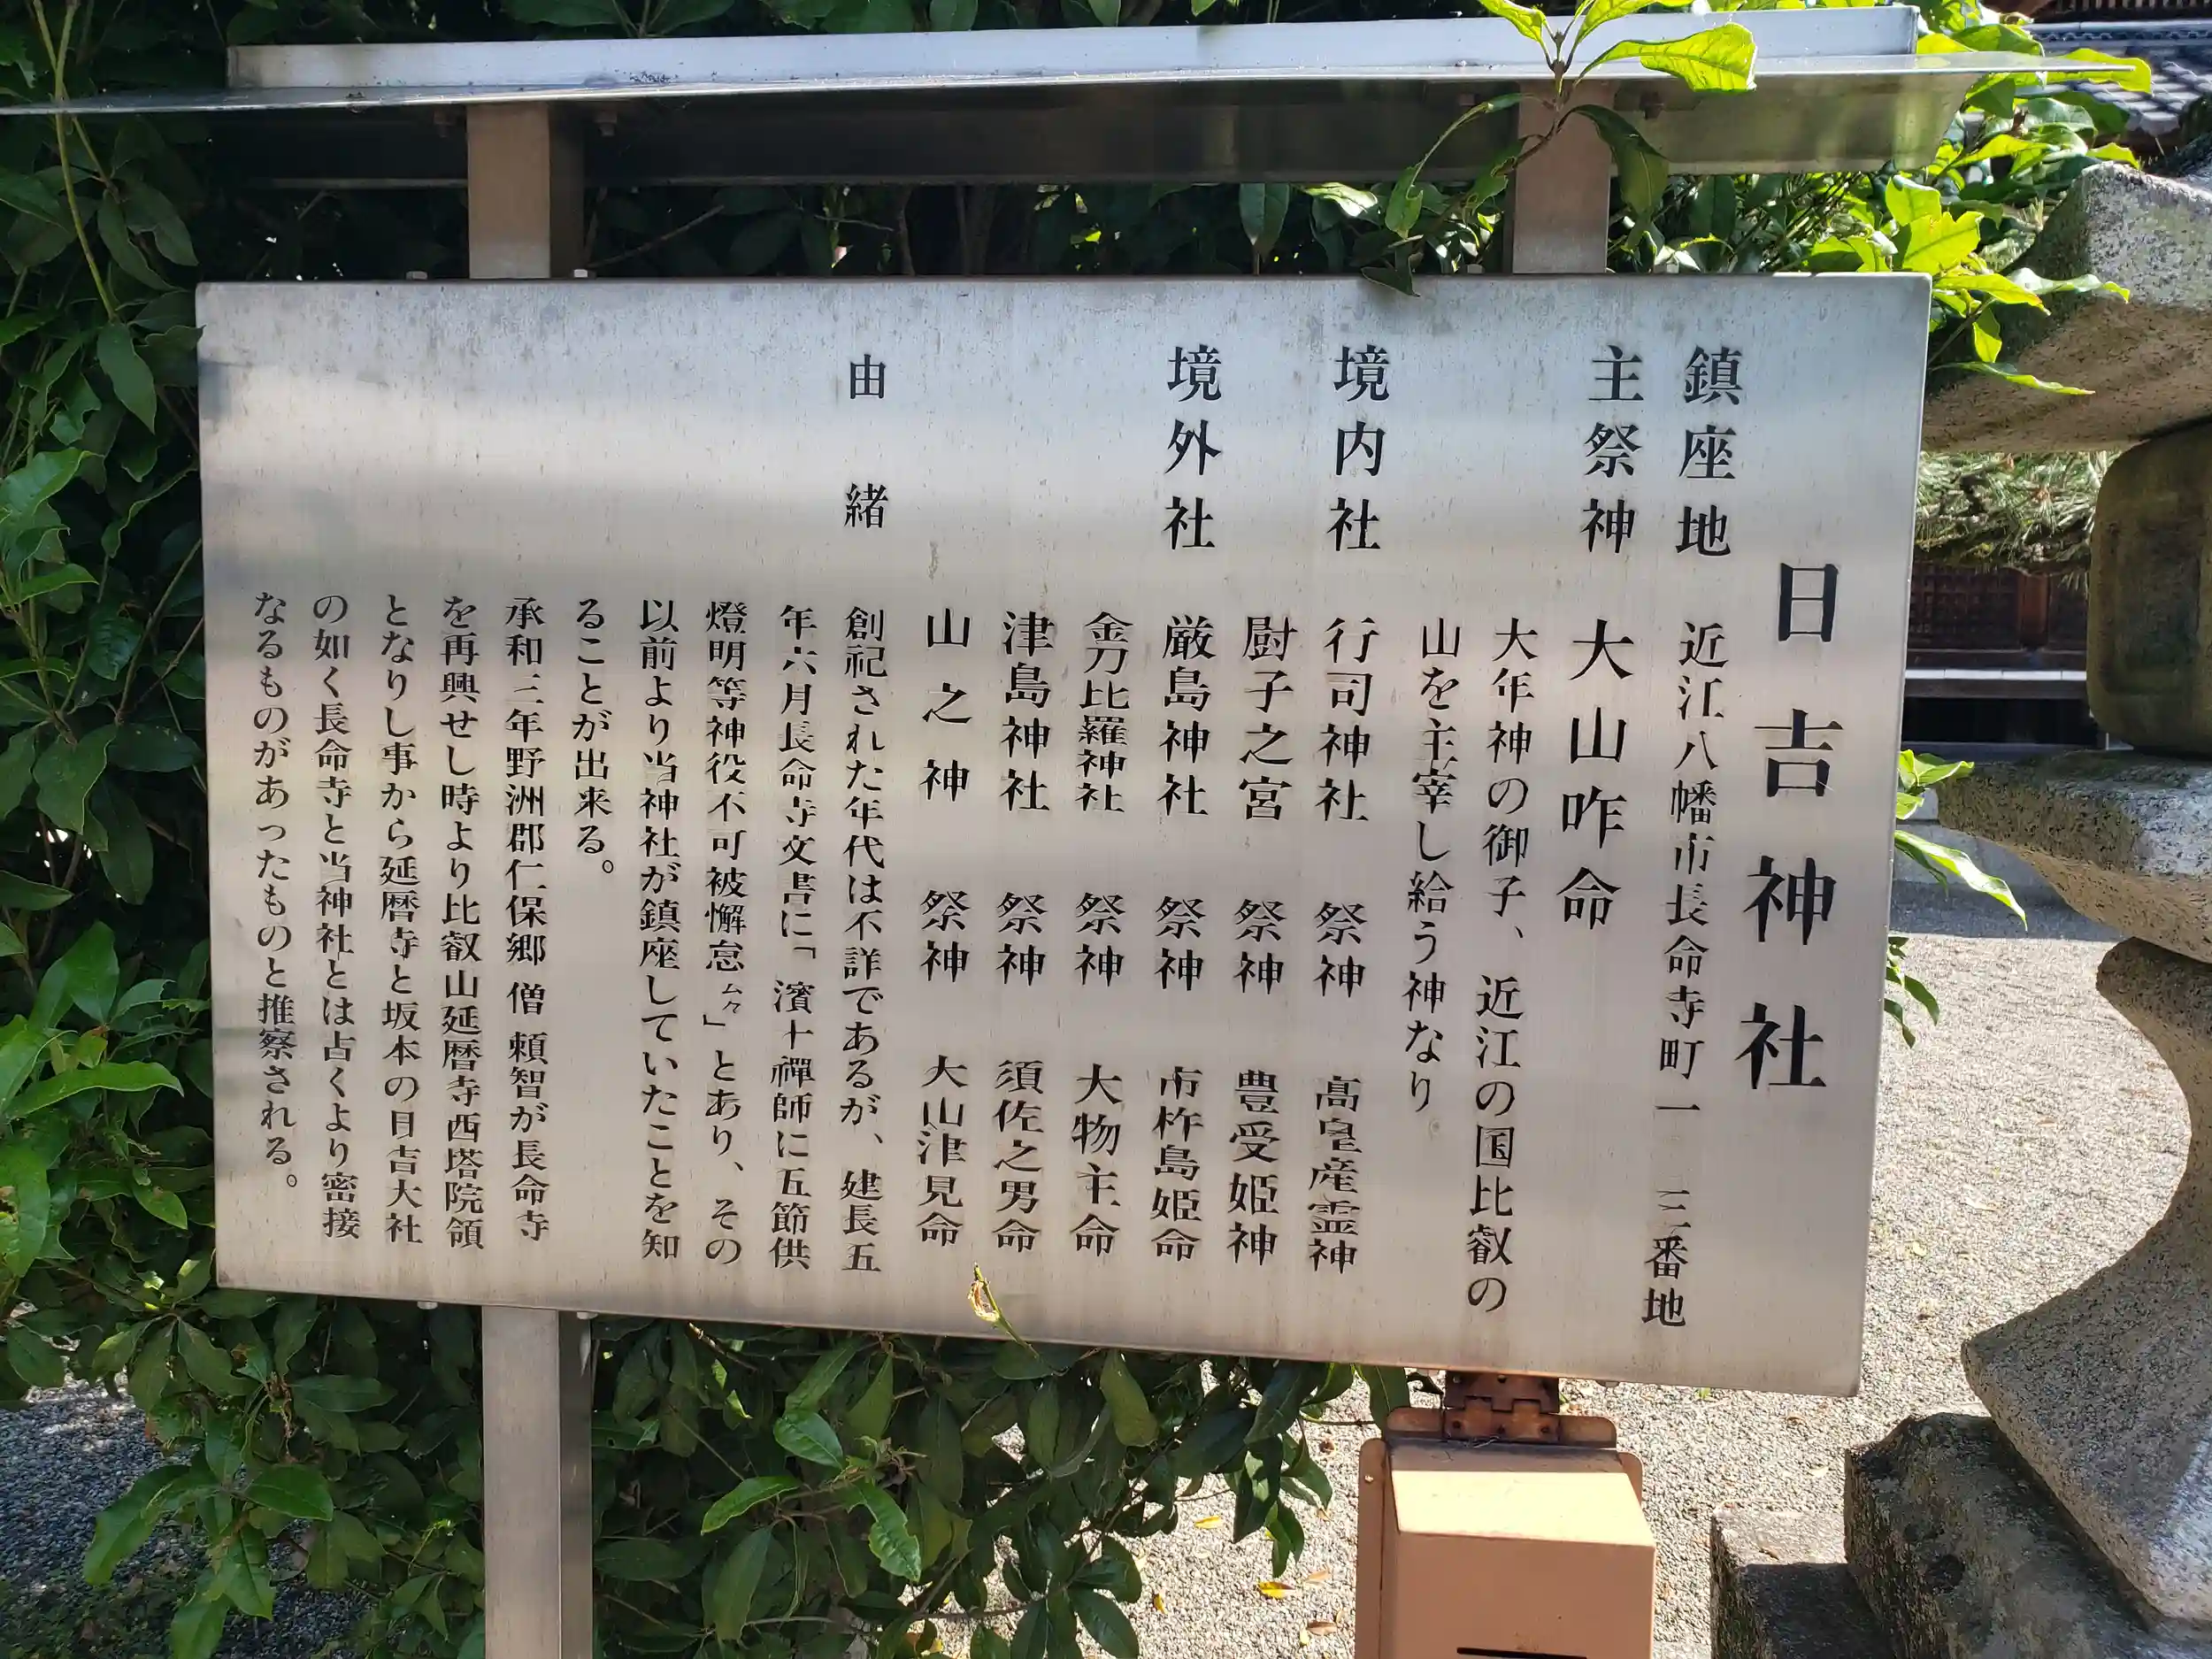 日吉神社
鎮座地 近江八幡市長命寺町一三番地
主祭神 大山咋命
大年神の御子、近江の国比叡の
山を主宰し給う神なり
境内社 行司神社 祭神 高皇産霊神
厨子之宮 祭神 豊受姫神
境外社 厳島神社 祭神 市杵島姫命
金刀比羅神社 祭神 大物主命
津島神社 祭神 須佐之男命
山之神 祭神 大山津見命
由緒 創祀された年代は不詳であるが、建長五
年六月長命寺文書に「濱十禪師に五節供
燈明等神役不可被懈怠ム々」とあり、その
以前より当神社が鎮座していたことを知
ることが出来る。
承和三年野洲郡仁保郷 僧 頼智が長命寺
を再興せし時より比叡山延暦寺西塔院領
となりし事から延暦寺と坂本の日吉大社
の如く長命寺と当神社とは占くより密接
なるものがあったものと推察される。